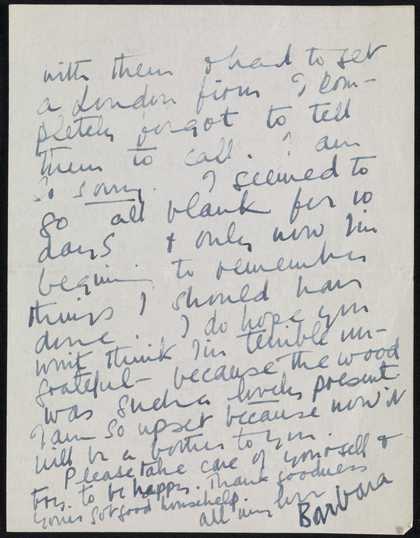 with them & had to get
a London firm I com-
pletely forgot to tell
them to call. I am
so sorry. I seemed to
go all blank for 10
days & only now I'm
begining to remember
things I should have
done. I do hope you
wont think I'm terrible un-
grateful - because the wood
was such a lovely present
I am so upset because now it
will be a bother to you.
Please take care of yourself &
try to be happy. Thank goodness
youve got good household help.
all my love
Barbara